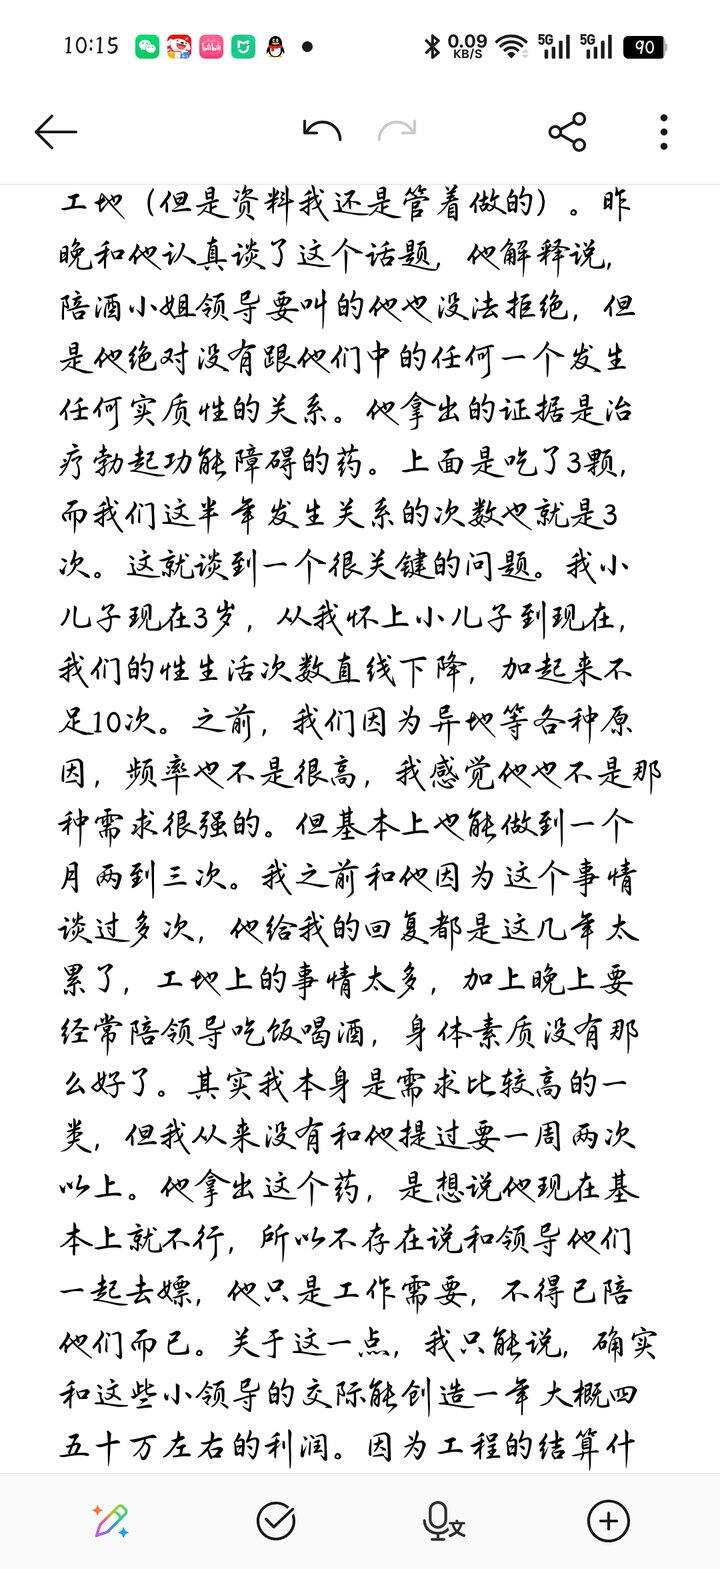 10:15
0.09
KB/S
5G
5G
90
工地（但是资料我还是管着做的）。昨
晚和他认真谈了这个话题，他解释说，
陪酒小姐领导要叫的他也没法拒绝，但
是他绝对没有跟他们中的任何一个发生
任何实质性的关系。他拿出的证据是治
疗勃起功能障碍的药。上面是吃了3颗，
而我们这半年发生关系的次数也就是3
次。这就谈到一个很关键的问题。我小
儿子现在3岁，从我怀上小儿子到现在，
我们的性生活次数直线下降，加起来不
足10次。之前，我们因为异地等各种原
因，频率也不是很高，我感觉他也不是那
种需求很强的。但基本上也能做到一个
月两到三次。我之前和他因为这个事情
谈过多次，他给我的回复都是这几年太
累了，工地上的事情太多，加上晚上要
经常陪领导吃饭喝酒，身体素质没有那
么好了。其实我本身是需求比较高的一
类，但我从来没有和他提过要一周两次
以上。他拿出这个药，是想说他现在基
本上就不行，所以不存在说和领导他们
一起去嫖，他只是工作需要，不得已陪
他们而已。关于这一点，我只能说，确实
和这些小领导的交际能创造一年大概四
五十万左右的利润。因为工程的结算什
文